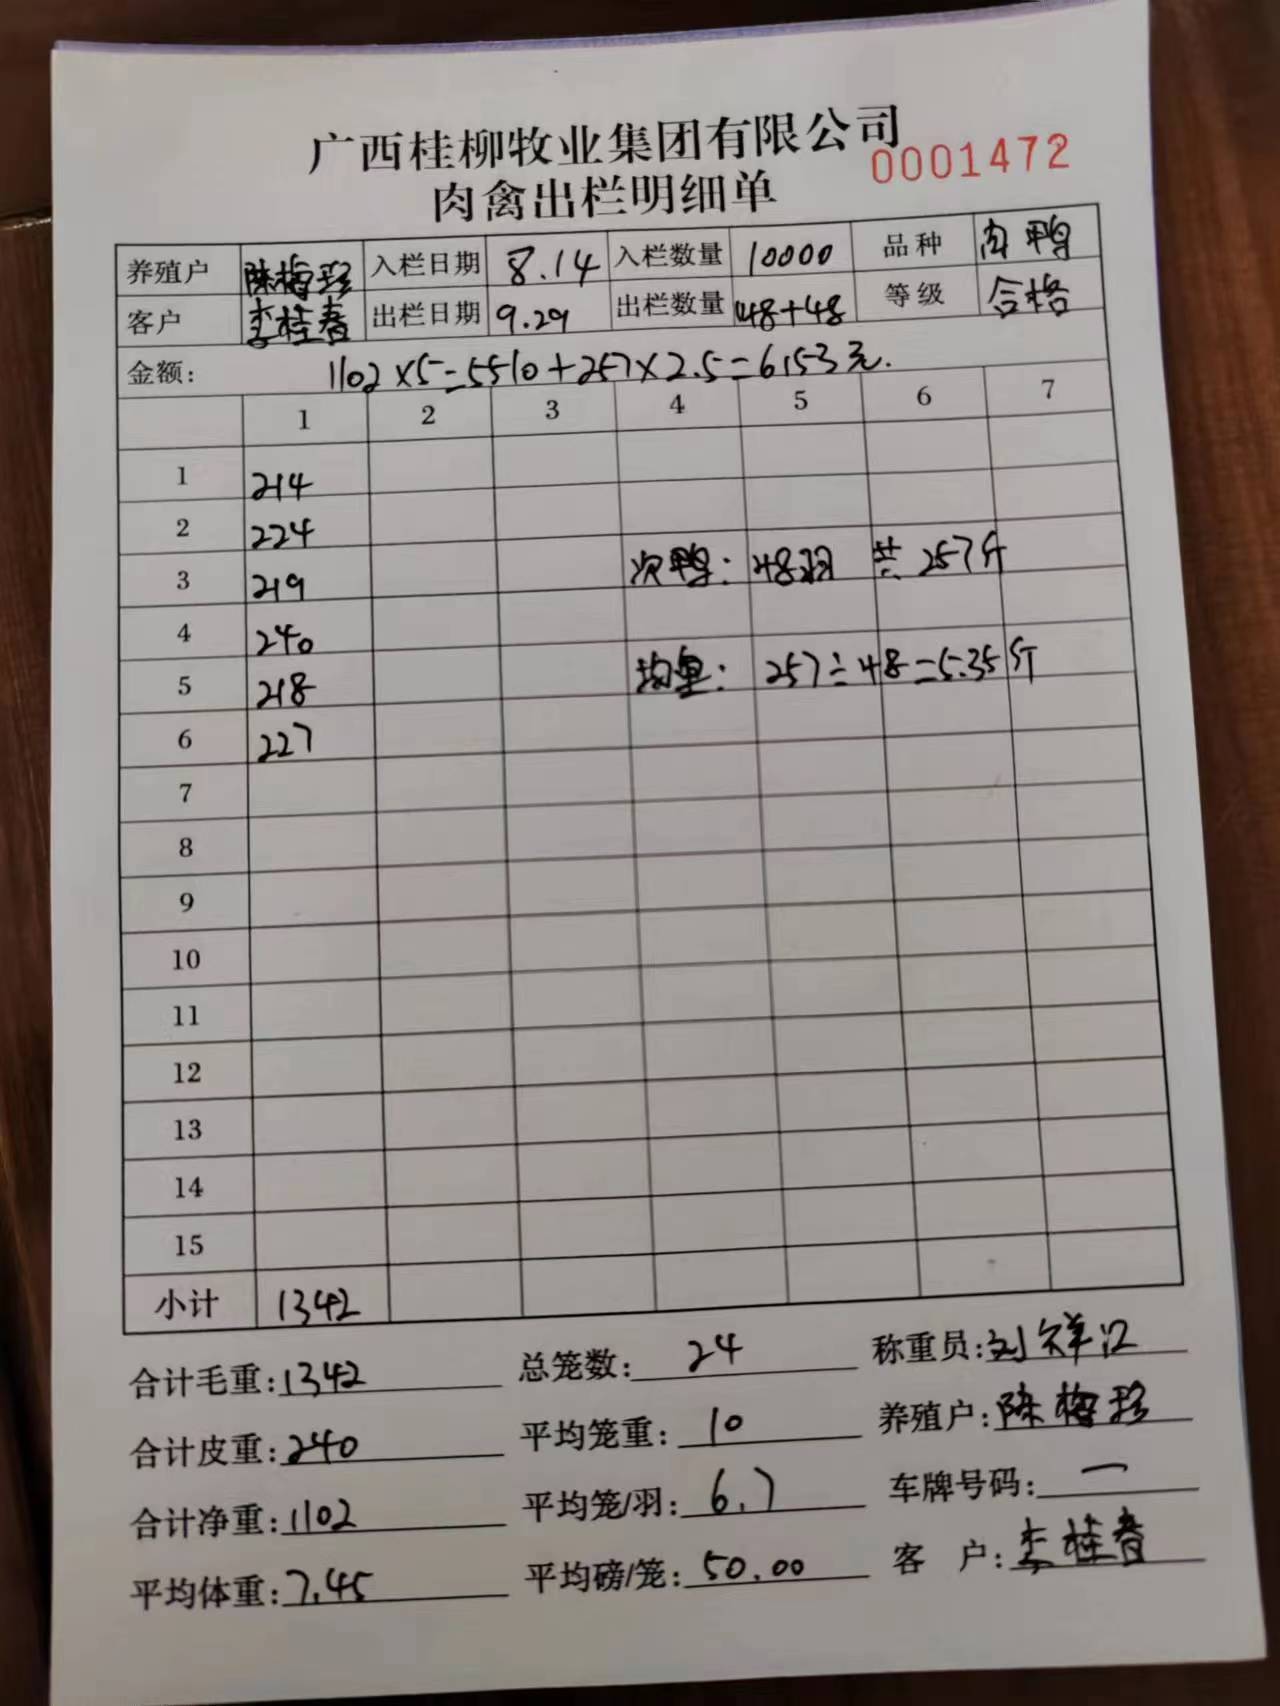 广西桂柳牧业集团有限公司
0001472
肉禽出栏明细单
养殖户 陈梅珍 入栏日期 8.14 入栏数量 10000 品种 肉鸭
客户 李桂春 出栏日期 9.29 出栏数量 148+48 等级 合格
金额: 1102×5=5510+257×2.5=6153元.
1 2 3 4 5 6 7
1 214
2 224
3 219 次鸭: 48羽 共 257斤
4 240
5 218 均重: 257÷48=5.35斤
6 227
7
8
9
10
11
12
13
14
15
小计 1342
合计毛重:1342 总笼数: 24 称重员:刘祥江
合计皮重:240 平均笼重: 10 养殖户:陈梅珍
合计净重:1102 平均笼/羽: 6.7 车牌号码: 一
平均体重:7.45 平均磅/笼: 50.00 客 户:李桂春